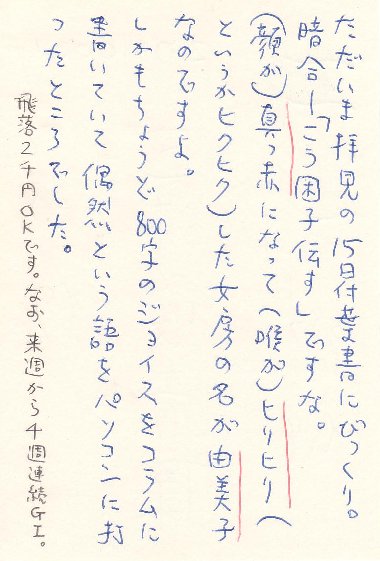 ただいま拝見の15日付葉書にびっくり。
暗合ー「こう困子伝す」ですな。
(顔が)真っ赤になって(喉が)ヒリヒリ(
というかヒクヒク)した女房の名が由美子
なのですよ。
しかもちょうど800字のジョイスをコラムに
書いていて偶然という語をパソコンに打
ったところでした。
飛落2千円OKです。なお、来週から4週連続GI。